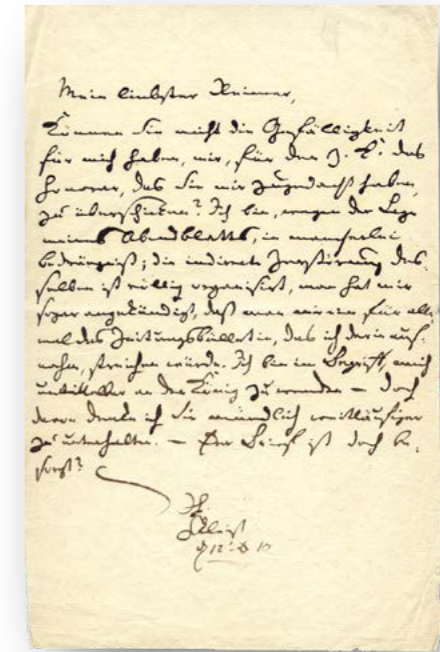 Mein liebster Reimer,
Können Sie nicht die Gefälligkeit
für mich haben, mir, für den z. K. das
Honorar, das Sie mir zugedacht haben,
zu überschicken? Ich bin, wegen der Lage
meines Abendblatts, in mancherlei
Bedrängniß; die indirecte Zerstörung des-
selben ist völlig organisirt, man hat mir
sogar angekündigt, daß man mir ein für alle-
mal das Zeitungsbülletin, das ich darin auf-
nahm, streichen würde. Ich bin im Begriff, mich
unmittelbar an den König zu wenden – doch
davon denke ich Sie mündlich weitläufiger
zu unterhalten. – Der Brief ist doch be-
sorgt?
H. Kleist
12